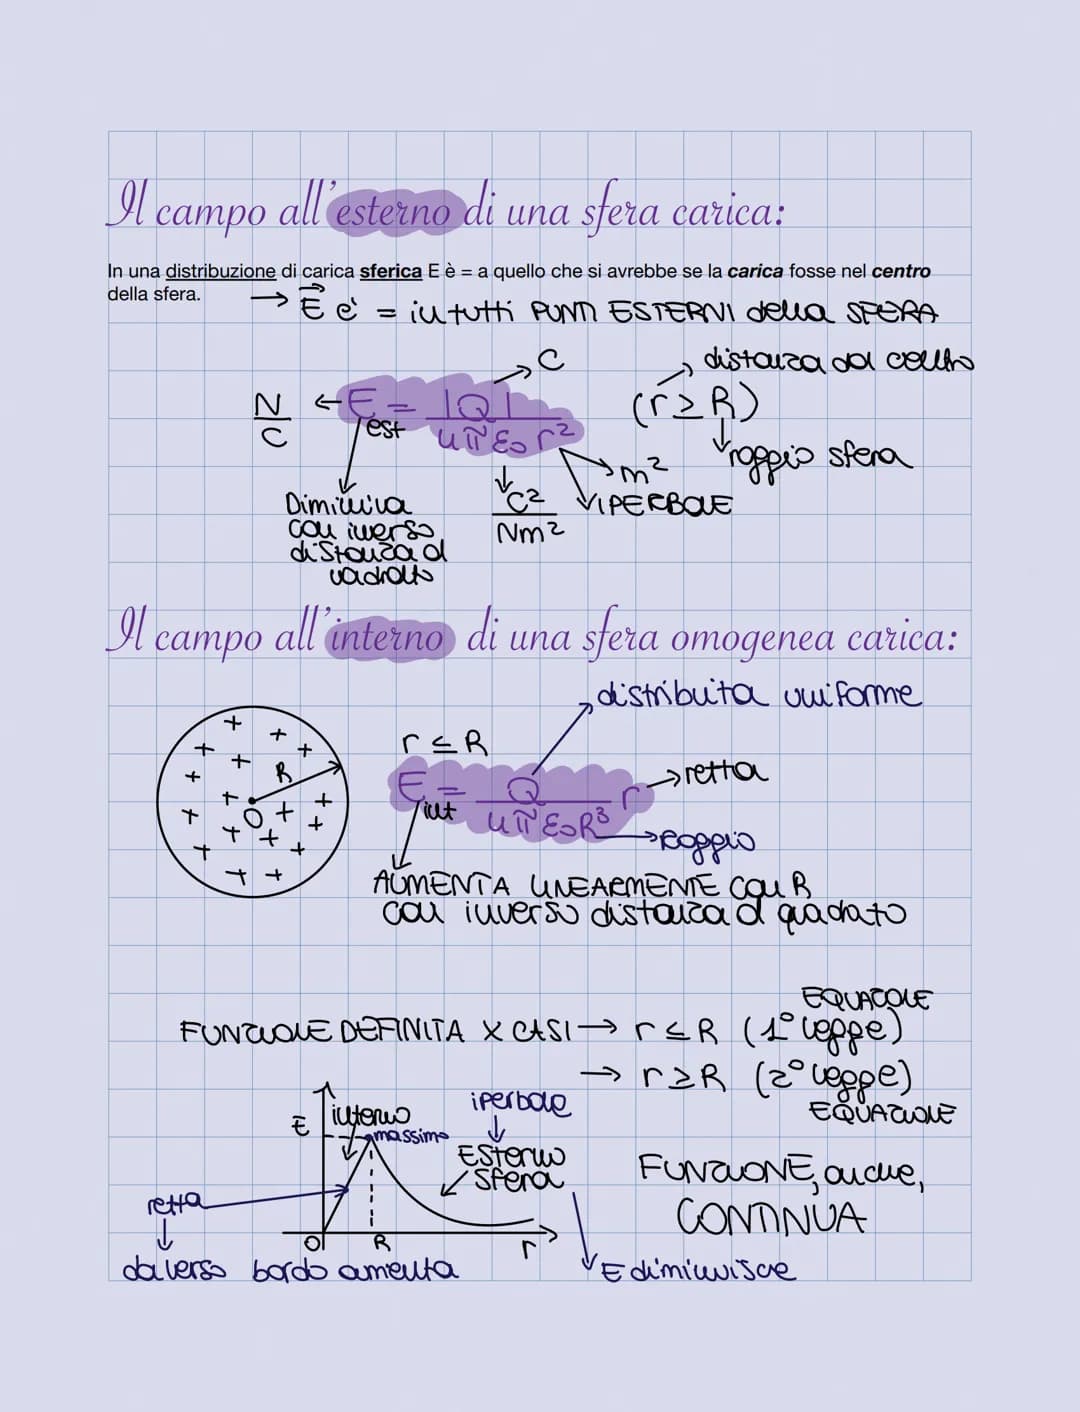 Il campo all'esterno di una sfera carica:
In una distribuzione di carica sferica E è = a quello che si avrebbe se la carica fosse nel centro
della sfera.
→ E è = in tutti PUNTI ESTERNI della SFERA
C
distanza dal centro
N/C ← E est = |Q| / 4π ε0 r²
(r ≥ R)
m²
raggio sfera
C²/Nm²
IPERBOLE
Diminuiva
con inverso
distanza al
quadrato
Il campo all'interno di una sfera omogenea carica:
distribuita uniforme
r ≤ R
R
O
E int = Q / 4π ε0 R³ r
→ retta
→ Raggio
AUMENTA LINEARMENTE con R
con inverso distanza al quadrato
EQUAZIONE
FUNZIONE DEFINITA X CASI → r ≤ R (1° legge)
→ r ≥ R (2° legge)
EQUAZIONE
iperbole
E
interno
massimo
Esterno
sfera
FUNZIONE, anche,
CONTINUA
retta
O
R
r
da verso bordo aumenta
E diminuisce